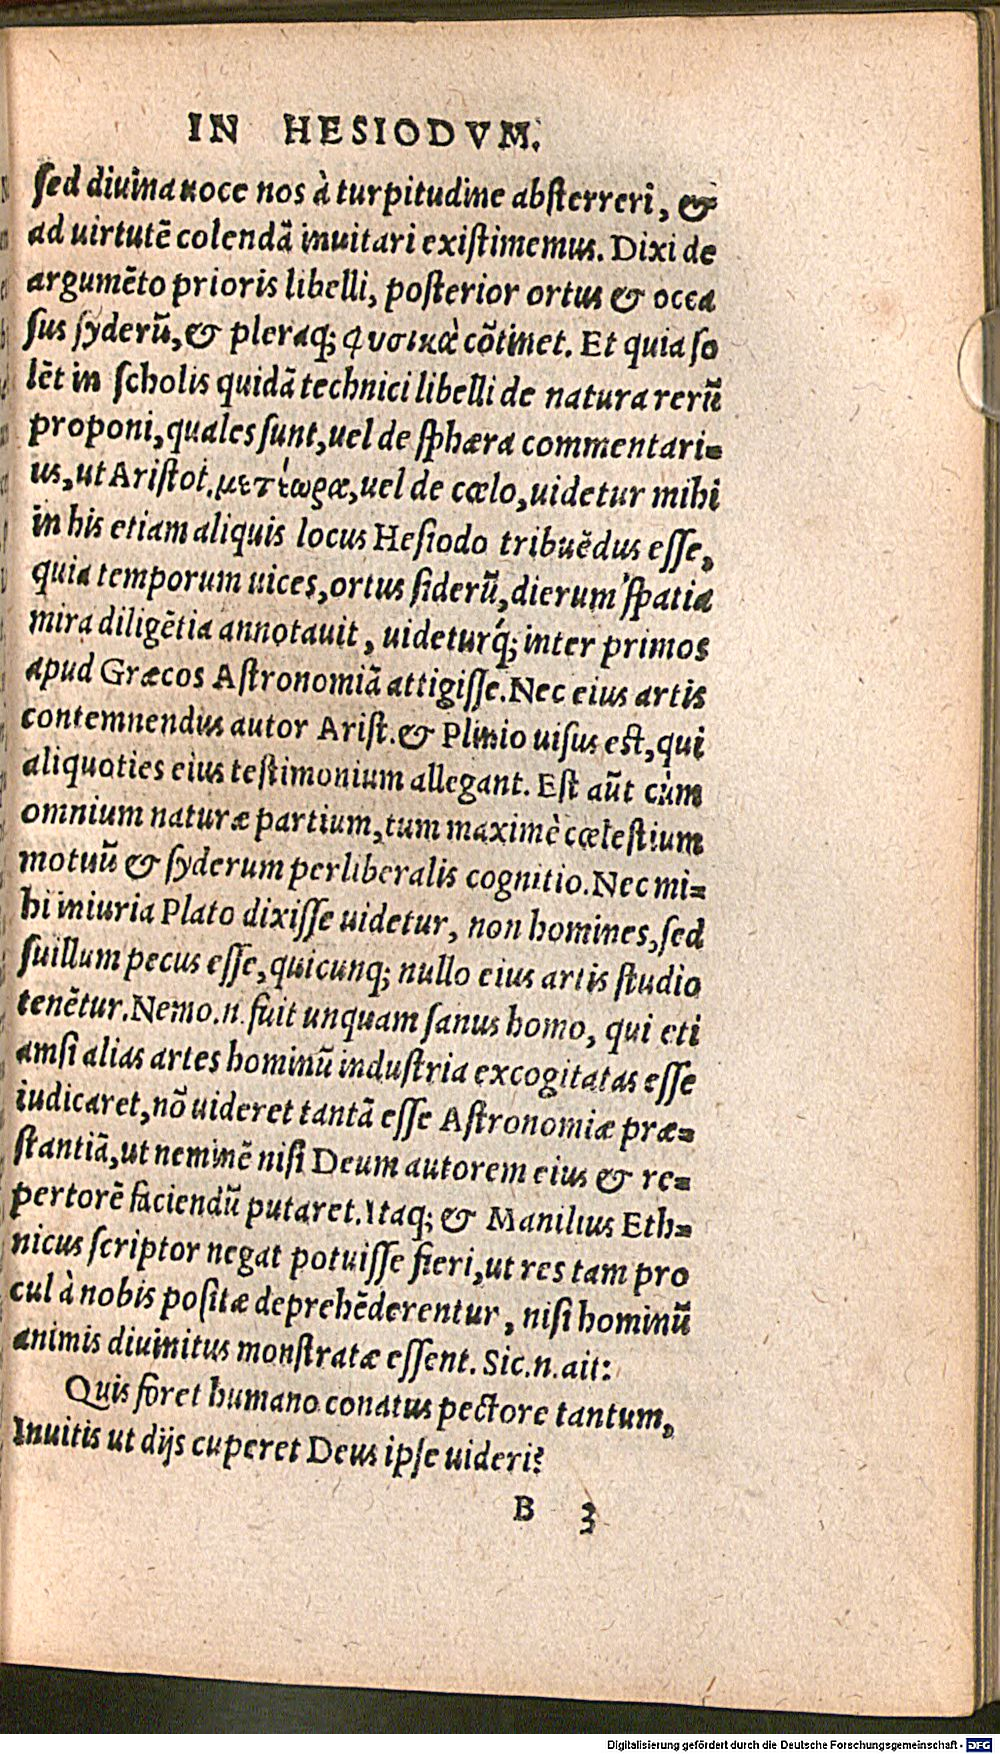 IN HESIODVM.
sed diuina uoce nos à turpitudine absterreri, &
ad uirtutẽ colendã inuitari existimemus. Dixi de
argumẽto prioris libelli, posterior ortus & occa
sus syderũ, & pleraq; φυσικὰ cõtinet. Et quia so
lẽt in scholis quidã technici libelli de natura rerũ
proponi, quales sunt, uel de sphæra commentari=
us, ut Aristot. μετέωρα, uel de cœlo, uidetur mihi
in his etiam aliquis locus Hesiodo tribuẽdus esse,
quia temporum uices, ortus siderũ, dierum spatia
mira diligẽtia annotauit, uideturq́; inter primos
apud Græcos Astronomiã attigisse. Nec eius artis
contemnendus autor Arist. & Plinio uisus est, qui
aliquoties eius testimonium allegant. Est aũt cùm
omnium naturæ partium, tum maximè cœlestium
motuũ & syderum perliberalis cognitio. Nec mi=
hi iniuria Plato dixisse uidetur, non homines, sed
suillum pecus esse, quicunq; nullo eius artis studio
tenẽtur. Nemo.n. fuit unquam sanus homo, qui eti
amsi alias artes hominũ industria excogitatas esse
iudicaret, nõ uideret tantã esse Astronomiæ præ=
stantiã, ut neminẽ nisi Deum autorem eius & re=
pertorẽ faciendũ putaret. Itaq; & Manilius Eth=
nicus scriptor negat potuisse fieri, ut res tam pro
cul à nobis positæ deprehẽderentur, nisi hominũ
animis diuinitus monstratæ essent. Sic.n.ait:
Quis foret humano conatus pectore tantum,
Inuitis ut dijs cuperet Deus ipse uideri?
B 3
Digitalisierung gefördert durch die Deutsche Forschungsgemeinschaft - DFG